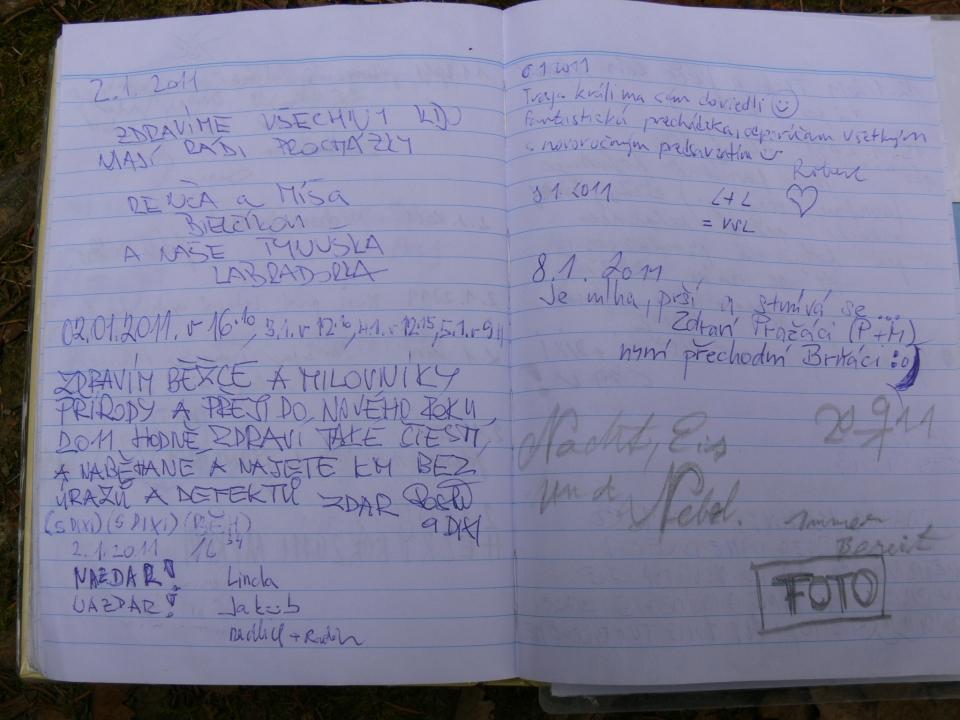 2.1.2011
ZDRAVÍME VŠECHNY KDO
MAJÍ RÁDI PROCHÁZKY
RENČA a Míša
A NAŠE TYNUŠKA
LABRADORKA
02.01.2011. v 16.10, 3.1. v 12.10, 4.1. v 12.15, 5.1. v 9.11
ZDRAVÍM BĚŽCE A MILOVNÍKY
PŘÍRODY A PŘEJI DO NOVÉHO ROKU
2011 HODNĚ ZDRAVÍ TAKÉ ŠTĚSTÍ,
A NABĚHANÉ A NAJETÉ KM BEZ
ÚRAZŮ A DEFEKTŮ ZDAR
a DIXI
(S DIXI) (S DIXI) (BĚH)
2.1.2011 16 34
NAZDAR! Linda
NAZDAR! Jakub
6.1.2011
Traja králi ma sem doviedli
Fantastická prechádzka, odporúčam všetkým
s novoročným predsavzatím
Robert
8.1.2011 L+L
= VVL
8.1.2011
Je mlha, prší a stmívá se...
Zdraví Pražáci (P+M)
nyní přechodní Britáci :o)
Nacht, Eis
und Nebel.
Immer
Bereit
FOTO